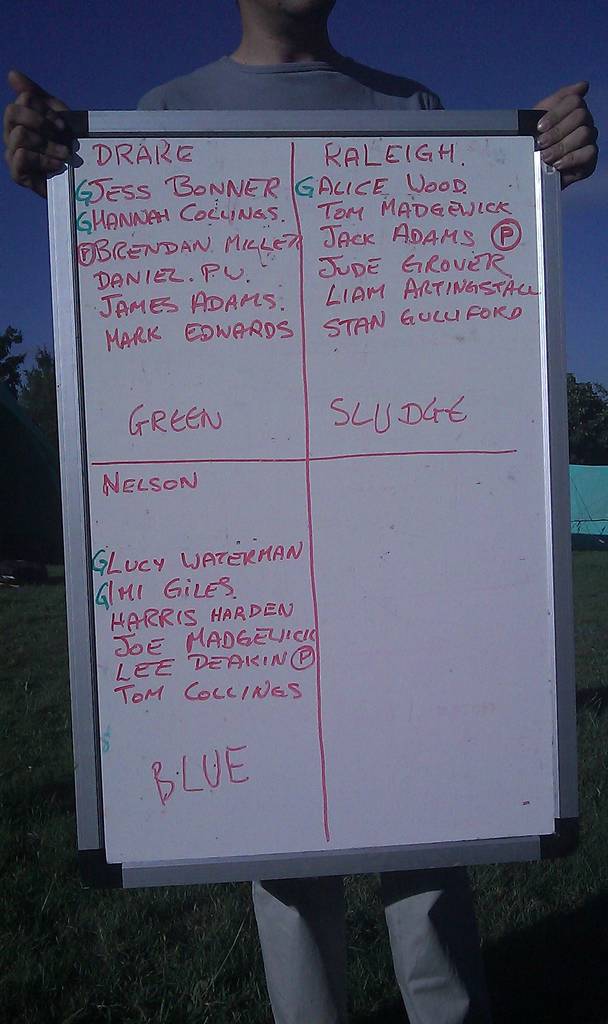 DRAKE
G JESS BONNER
G HANNAH COLLINGS.
(P) BRENDAN MILLER
DANIEL. P.W.
JAMES ADAMS.
MARK EDWARDS
GREEN
RALEIGH.
G ALICE WOOD
TOM MADGEWICK
JACK ADAMS (P)
JUDE GROVER
LIAM ARTINGSTALL
STAN GULLIFORD
SLUDGE
NELSON
G LUCY WATERMAN
G IMI GILES
HARRIS HARDEN
JOE MADGEWICK
LEE DEAKIN (P)
TOM COLLINGS
BLUE